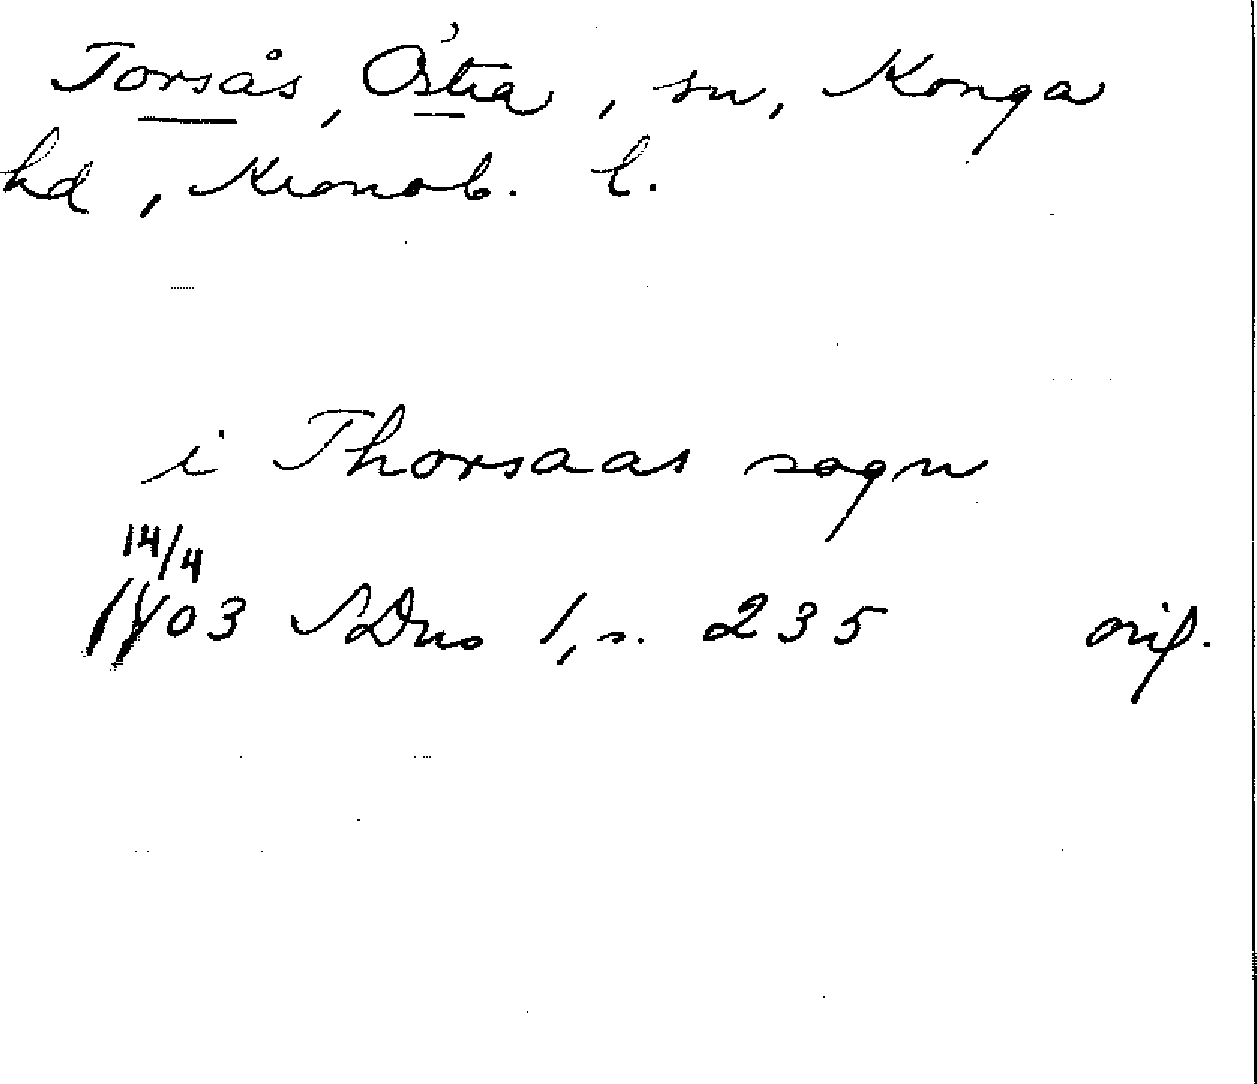 Torsås, Östra, sn, Konga
hd, Kronob. l.
i Thorsaas sogn
14/4
1403 SDns 1, s. 235 orig.